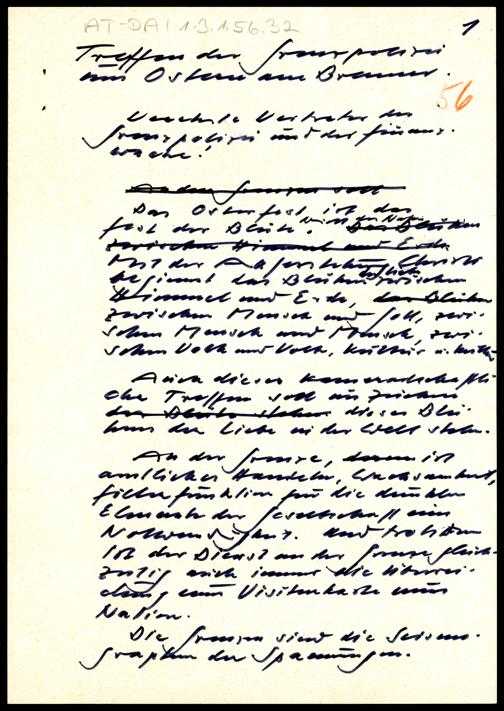 AT-DA/1.3.1.56.32
1
56
Treffen der Grenzpolizei
um Ostern am Brenner.
Verehrte Vertreter der
Grenzpolizei und der Finanz-
wache!
An den Grenzen soll
Das Osterfest ist das
Fest der Blüte. Das Blühen
zwischen Himmel und Erde
Mit der Auferstehung Christi
beginnt das Blühen zwischen
Himmel und Erde, das Blühen
zwischen Mensch und Gott, zwi-
schen Mensch und Mensch, zwi-
schen Volk und Volk, Kultur u. Kultur
Auch dieses kameradschaftli-
che Treffen soll im Zeichen
der Blüte stehen dieses Blü-
hens der Liebe in der Welt stehn.
An der Grenze, ist
amtliches Handeln, Wachsamkeit,
Filterfunktion für die dunklen
Elemente der Gesellschaft eine
Notwendigkeit. Und trotzdem
ist der Dienst an der Grenze gleich-
zeitig auch immer die
einer Visitenkarte einer
Nation.
Die Grenzen sind die Seismo-
graphen der Spannungen.